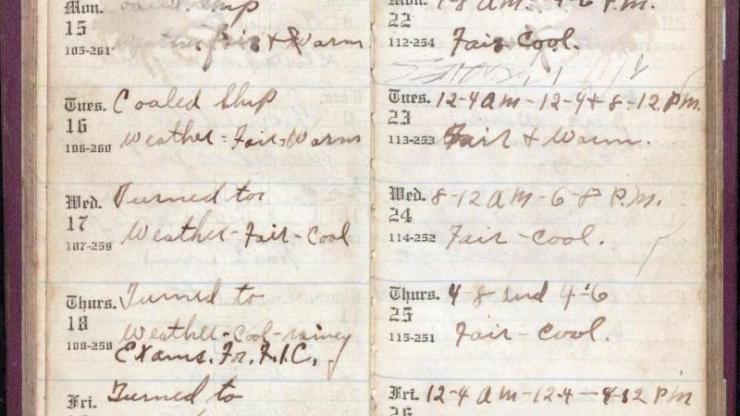 Mon. Coaled Ship
15
105-261 Weather Fair & Warm
Tues. Coaled Ship
16
106-260 Weather-Fair-Warm
Wed. Turned to
17
107-259 Weather-Fair-Cool
Thurs. Turned to
18
108-258 Weather-Cool-rainey
Exams. For. F.I.C.
Fri. Turned to
Mon.
22
112-254 Fair Cool.
Tues. 12-4 AM-12-4 & 8-12 P.M.
23
113-253 Fair & Warm.
Wed. 8-12 AM-6-8 P.M.
24
114-252 Fair-Cool.
Thurs. 4-8 and 4-6
25
115-251 Fair-Cool.
Fri. 12-4 AM-12-4-8-12 PM
26